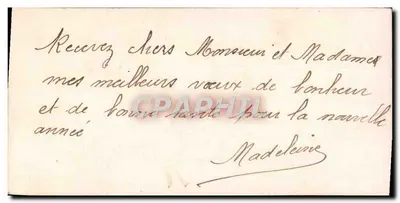 Recevez chers Monsieur et Madame
mes meilleurs vœux de bonheur
et de bonne santé pour la nouvelle
année
Madeleine
CPAPHIL